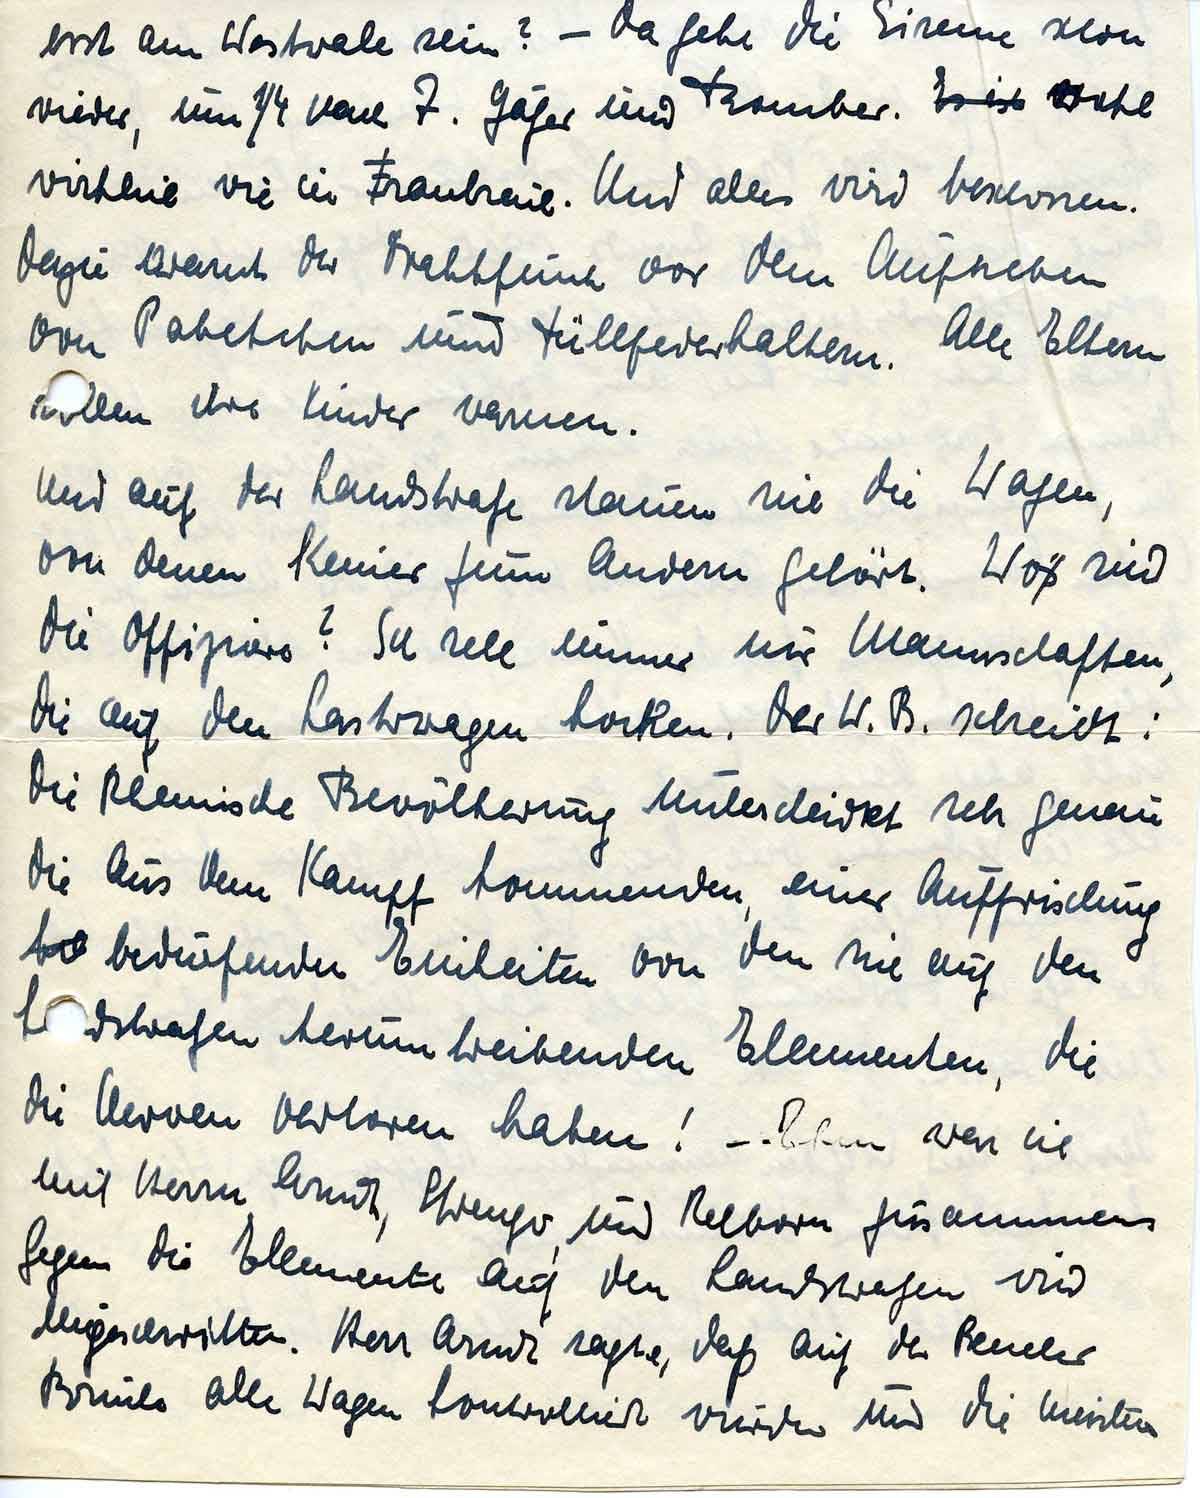 erst am Westwale sein? – Da geht die Sirene schon
wieder, um 1/4 nach 7. Jäger und Bomber. Es ist wohl
wirklich wie in Frankreich. Und alles wird beschossen.
Dazu warnt der Drahtfunk vor dem Aufheben
von Paketchen und Füllfederhaltern. Alle Eltern
sollen ihre Kinder warnen.
Und auf der Landstraße stauen sich die Wagen,
von denen Keiner zum Andern gehört. Wo sind
die Offiziere? Ich sehe immer nur Mannschaften,
die auf den Lastwagen hocken. Der W. B. schreibt:
Die Rheinische Bevölkerung unterscheidet sehr genau
die aus dem Kampf kommenden, einer Auffrischung
bedürfenden Einheiten von den sich auf den
Landstraßen herumtreibenden Elementen, die
die Nerven verloren haben! – Eben war ich
mit Herrn Arndt, und Relborn zusammen
Gegen die Elemente auf den Landstraßen wird
eingeschritten. Herr Arndt sagte, daß auf der Beueler
Brücke alle Wagen kontrolliert würden und die meisten